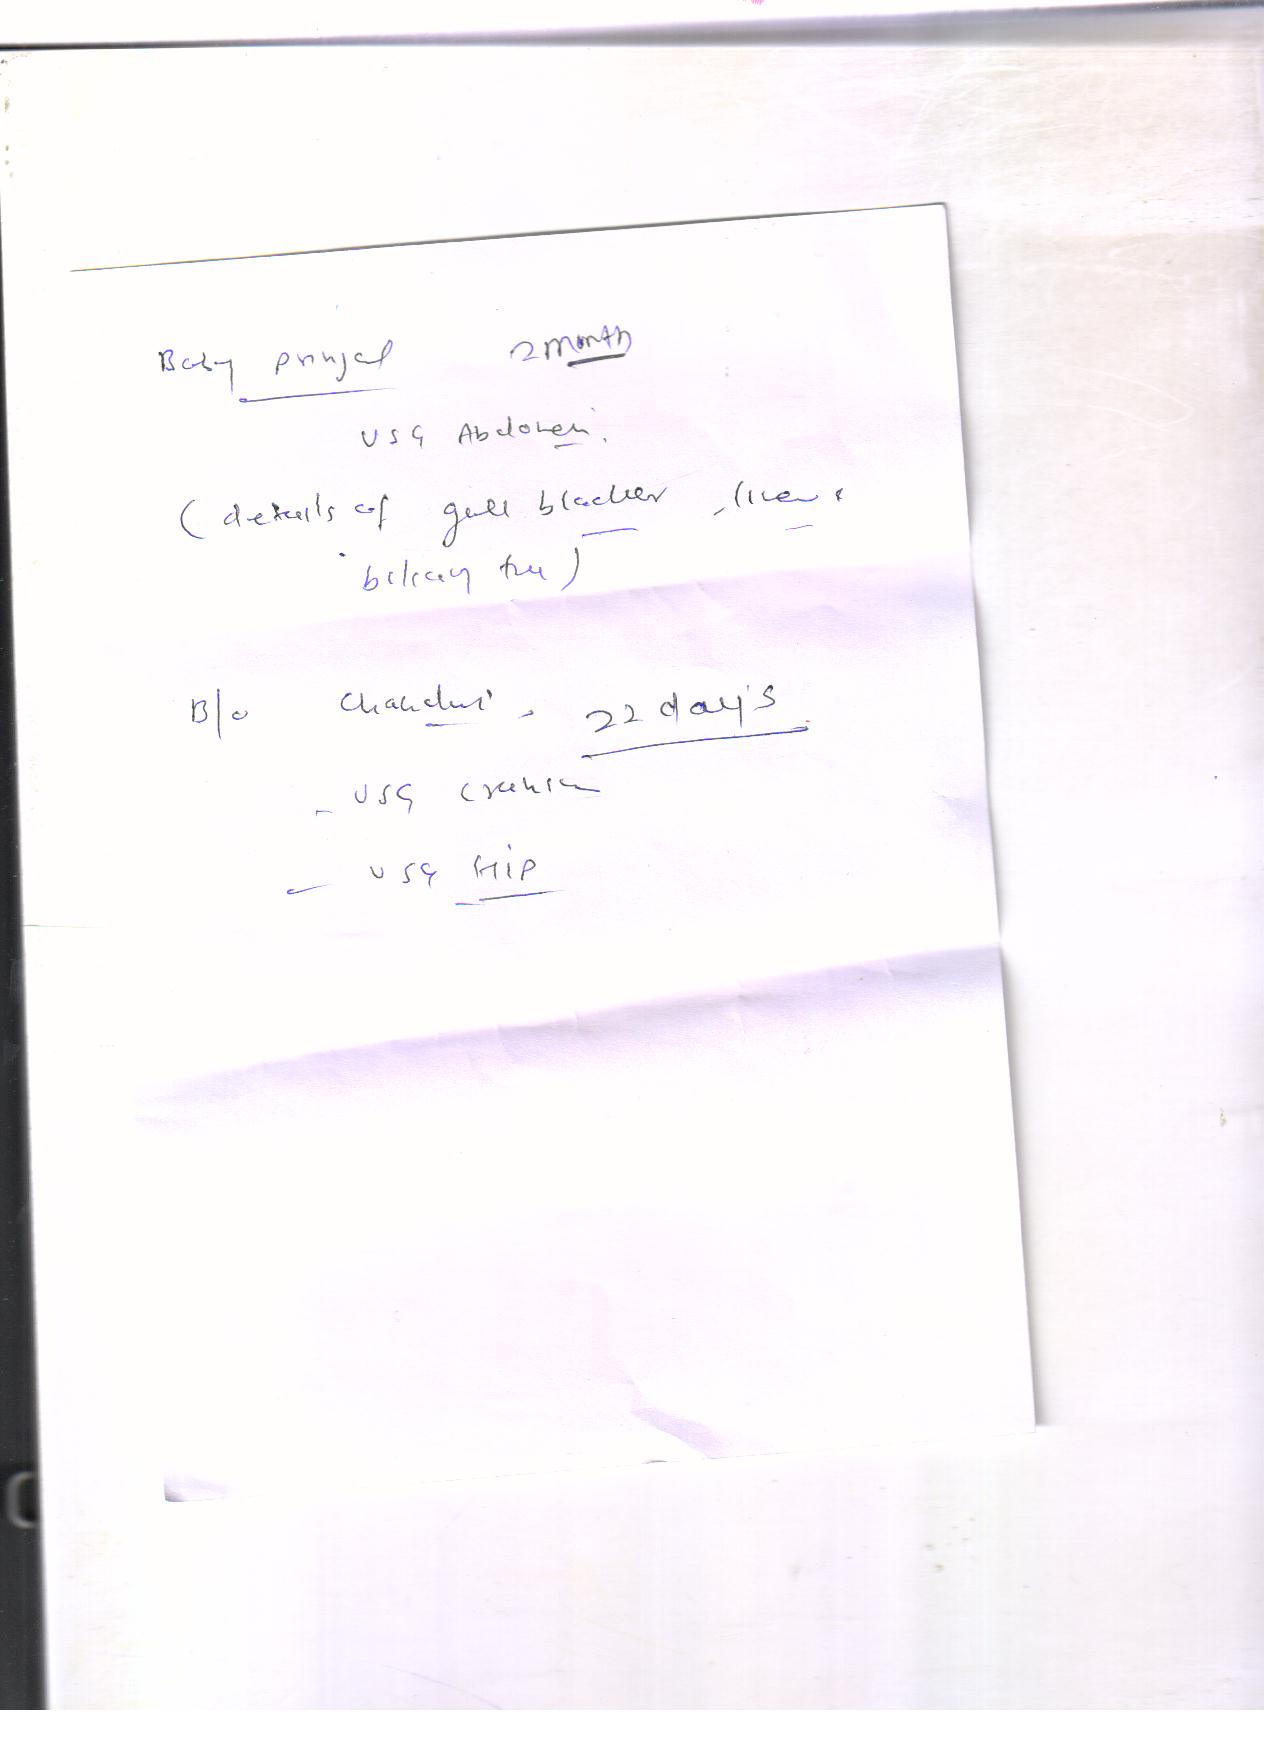 Baby prinjal 2 month
USG Abdomen.
(details of gall bladder, liver &
biliary tree)
B/o Chanduri, 22 day's
- USG cranium
- USG HIP